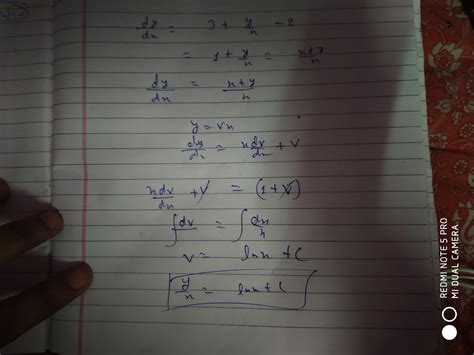 dy/dx = 3 + y/x - 2
= 1 + y/x = x+y/x
dy/dx = x+y/x
y = vx
dy/dx = x dv/dx + v
x dv/dx + v = (1 + v)
∫ dv = ∫ dx/x
v = lnx + C
y/x = lnx + C
REDMI NOTE 5 PRO
MI DUAL CAMERA